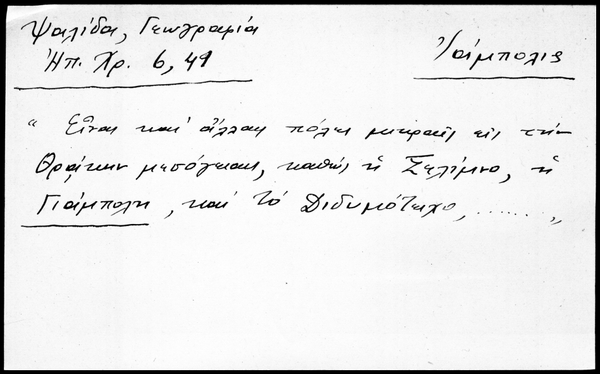 Ψαλίδα, Γεωγραφία
Ἠπ. Χρ. 6, 49
Ὑάμπολις
“ Εἶναι καὶ ἄλλαι πόλεις μικραὶ εἰς τὴν
Θρᾴκην μεσόγειαι, καθὼς ἡ Σελίμνο, ἡ
Γιάμπολη, καὶ τὸ Διδυμότειχο, ....... „